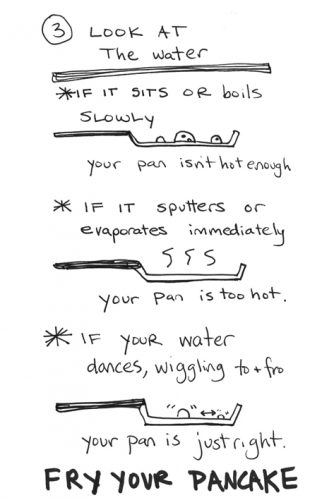 3 LOOK AT
The water
* IF IT SITS OR boils
SLOWLY
your pan isn't hot enough
* IF IT sputters or
evaporates immediately
your pan is too hot.
* IF YOUR water
dances, wiggling to + fro
your pan is just right.
FRY YOUR PANCAKE